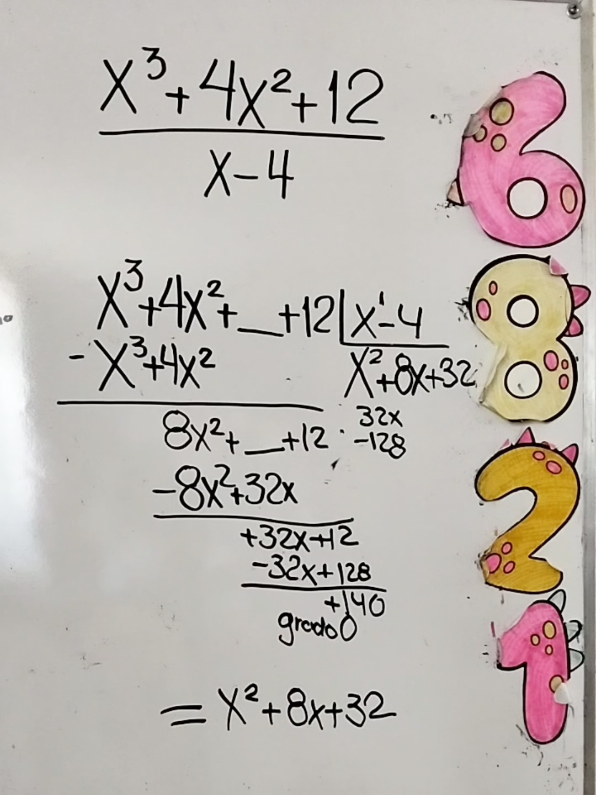 x³+4x²+12
x-4
x³+4x²+__+12 | x¹-4
-x³+4x² x²+8x+32
8x²+__+12 32x
-128
-8x²+32x
+32x+12
-32x+128
+140
grado0
= x²+8x+32
6
8
2
1